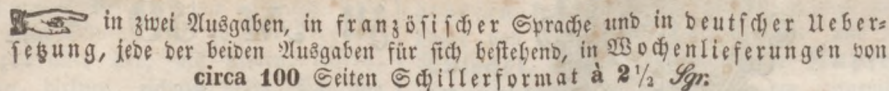 ☞ in zwei Ausgaben, in französischer Sprache und in deutscher Ueber-
setzung, jede der beiden Ausgaben für sich bestehend, in Wochenlieferungen von
circa 100 Seiten Schillerformat à 2½ Sgr.